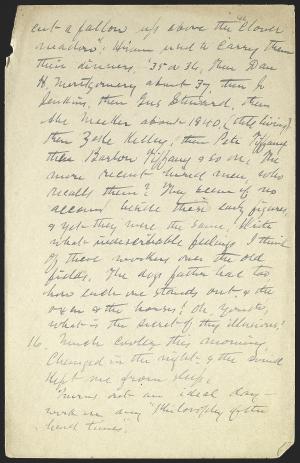 cut a fallow up above the "Clover
meadow"; Hiram used to carry them
their dinners, '35 or 36, then Dan
H. Montgomery about 37, then Jo
Jenkins, then Gus Steward, then
Abe Meeker about 1840, (still living)
then Zeke Kelley, then Pete Tiffany
then Barton Tiffany & so on. The
more recent hired men, who
recalls them? They seem of no
account beside these early figures,
& yet they were the same. With
what indescribable feelings I think
of these workers over the old
fields. The days father had too
how each one stands out & the
oxen & the horses! Oh, youth,
what is the secret of thy illusions!
16. Much cooler this morning.
Changed in the night & the wind
kept me from sleep.
Turns out an ideal day —
work on my "Philosophy of the
hard times.